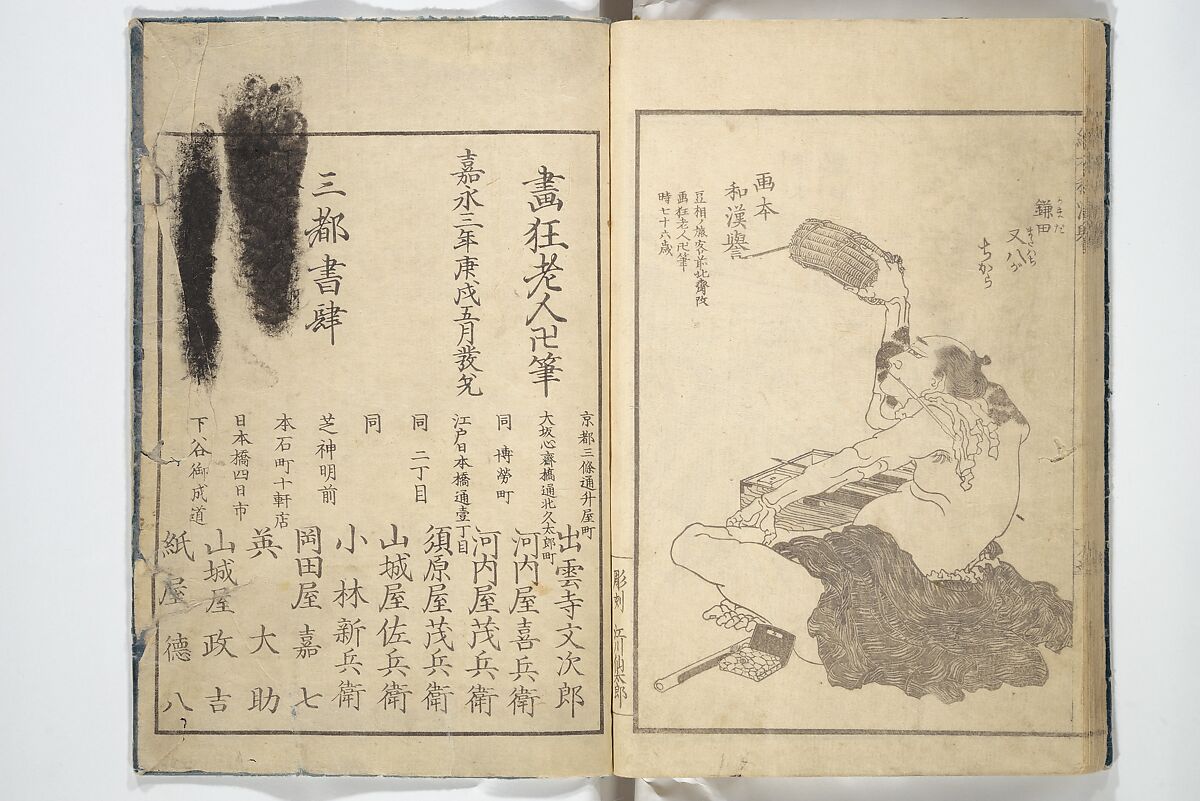 鎌田
かまだ
又八が
またはち
ちから
画本
和漢譽
豆相ノ旅客前北齋改
画狂老人卍筆
時七十六歳
彫刻
江川仙太郎
畫狂老人卍筆
嘉永三年庚戌五月發兌
三都書肆
京都三條通升屋町
出雲寺文次郎
大坂心齋橋通北久太郎町
河内屋喜兵衛
同 博勞町
河内屋茂兵衛
江戸日本橋通壹丁目
須原屋茂兵衛
同 二丁目
山城屋佐兵衛
同
小林新兵衛
芝神明前
岡田屋嘉七
本石町十軒店
英大助
日本橋四日市
山城屋政吉
下谷御成道
紙屋德八